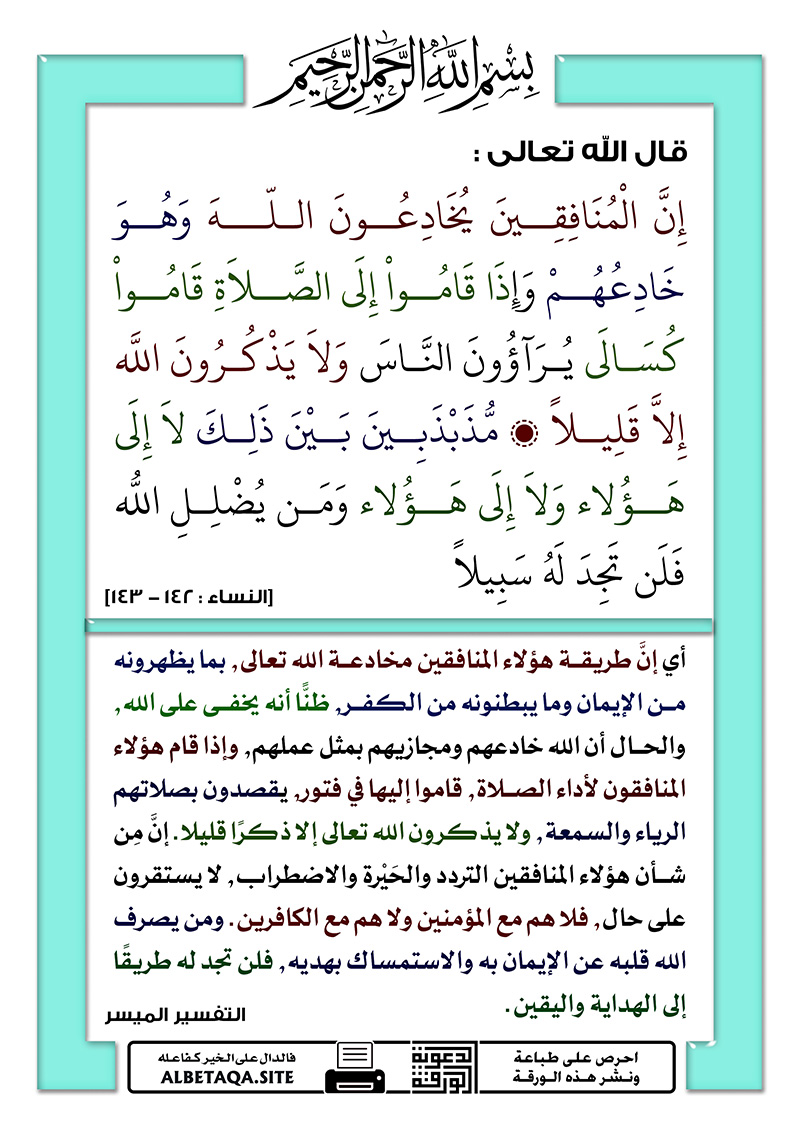 بِسْمِ اللَّهِ الرَّحْمَنِ الرَّحِيمِ
قال الله تعالى :
إِنَّ الْمُنَافِقِينَ يُخَادِعُونَ اللّهَ وَهُوَ
خَادِعُهُمْ وَإِذَا قَامُواْ إِلَى الصَّلاَةِ قَامُواْ
كُسَالَى يُرَآؤُونَ النَّاسَ وَلاَ يَذْكُرُونَ اللّه
إِلاَّ قَلِيلاً ۝ مُّذَبْذَبِينَ بَيْنَ ذَلِكَ لاَ إِلَى
هَؤُلاء وَلاَ إِلَى هَؤُلاء وَمَن يُضْلِلِ اللّه
فَلَن تَجِدَ لَهُ سَبِيلاً
[النساء : ١٤٢ - ١٤٣]
أي إنَّ طريقة هؤلاء المنافقين مخادعة الله تعالى, بما يظهرونه
من الإيمان وما يبطنونه من الكفر, ظنًّا أنه يخفى على الله,
والحال أن الله خادعهم ومجازيهم بمثل عملهم, وإذا قام هؤلاء
المنافقون لأداء الصلاة, قاموا إليها في فتور, يقصدون بصلاتهم
الرياء والسمعة, ولا يذكرون الله تعالى إلا ذكرًا قليلا. إنَّ مِن
شأن هؤلاء المنافقين التردد والحَيْرة والاضطراب, لا يستقرون
على حال, فلا هم مع المؤمنين ولا هم مع الكافرين. ومن يصرف
الله قلبه عن الإيمان به والاستمساك بهديه, فلن تجد له طريقًا
إلى الهداية واليقين.
التفسير الميسر
احرص على طباعة
ونشر هذه الورقة
الورقة
الدعوية
فالدال على الخير كفاعله
ALBETAQA.SITE